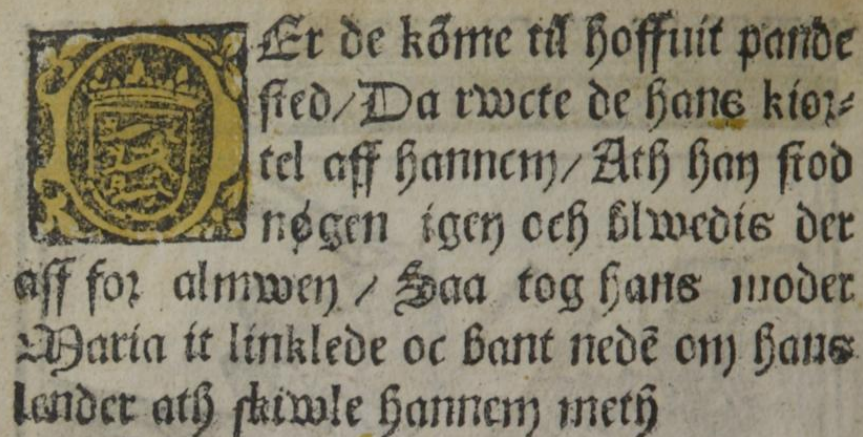 DEr de kõme til hoffuit pande
sted/Da rwcte de hans kior=
tel aff hannem/Ath han stod
nøgen igen och blwedis der
aff for almwen / Saa tog hans moder
Maria it linklede oc bant nedẽ om hans
lender ath skiwle hannem meth